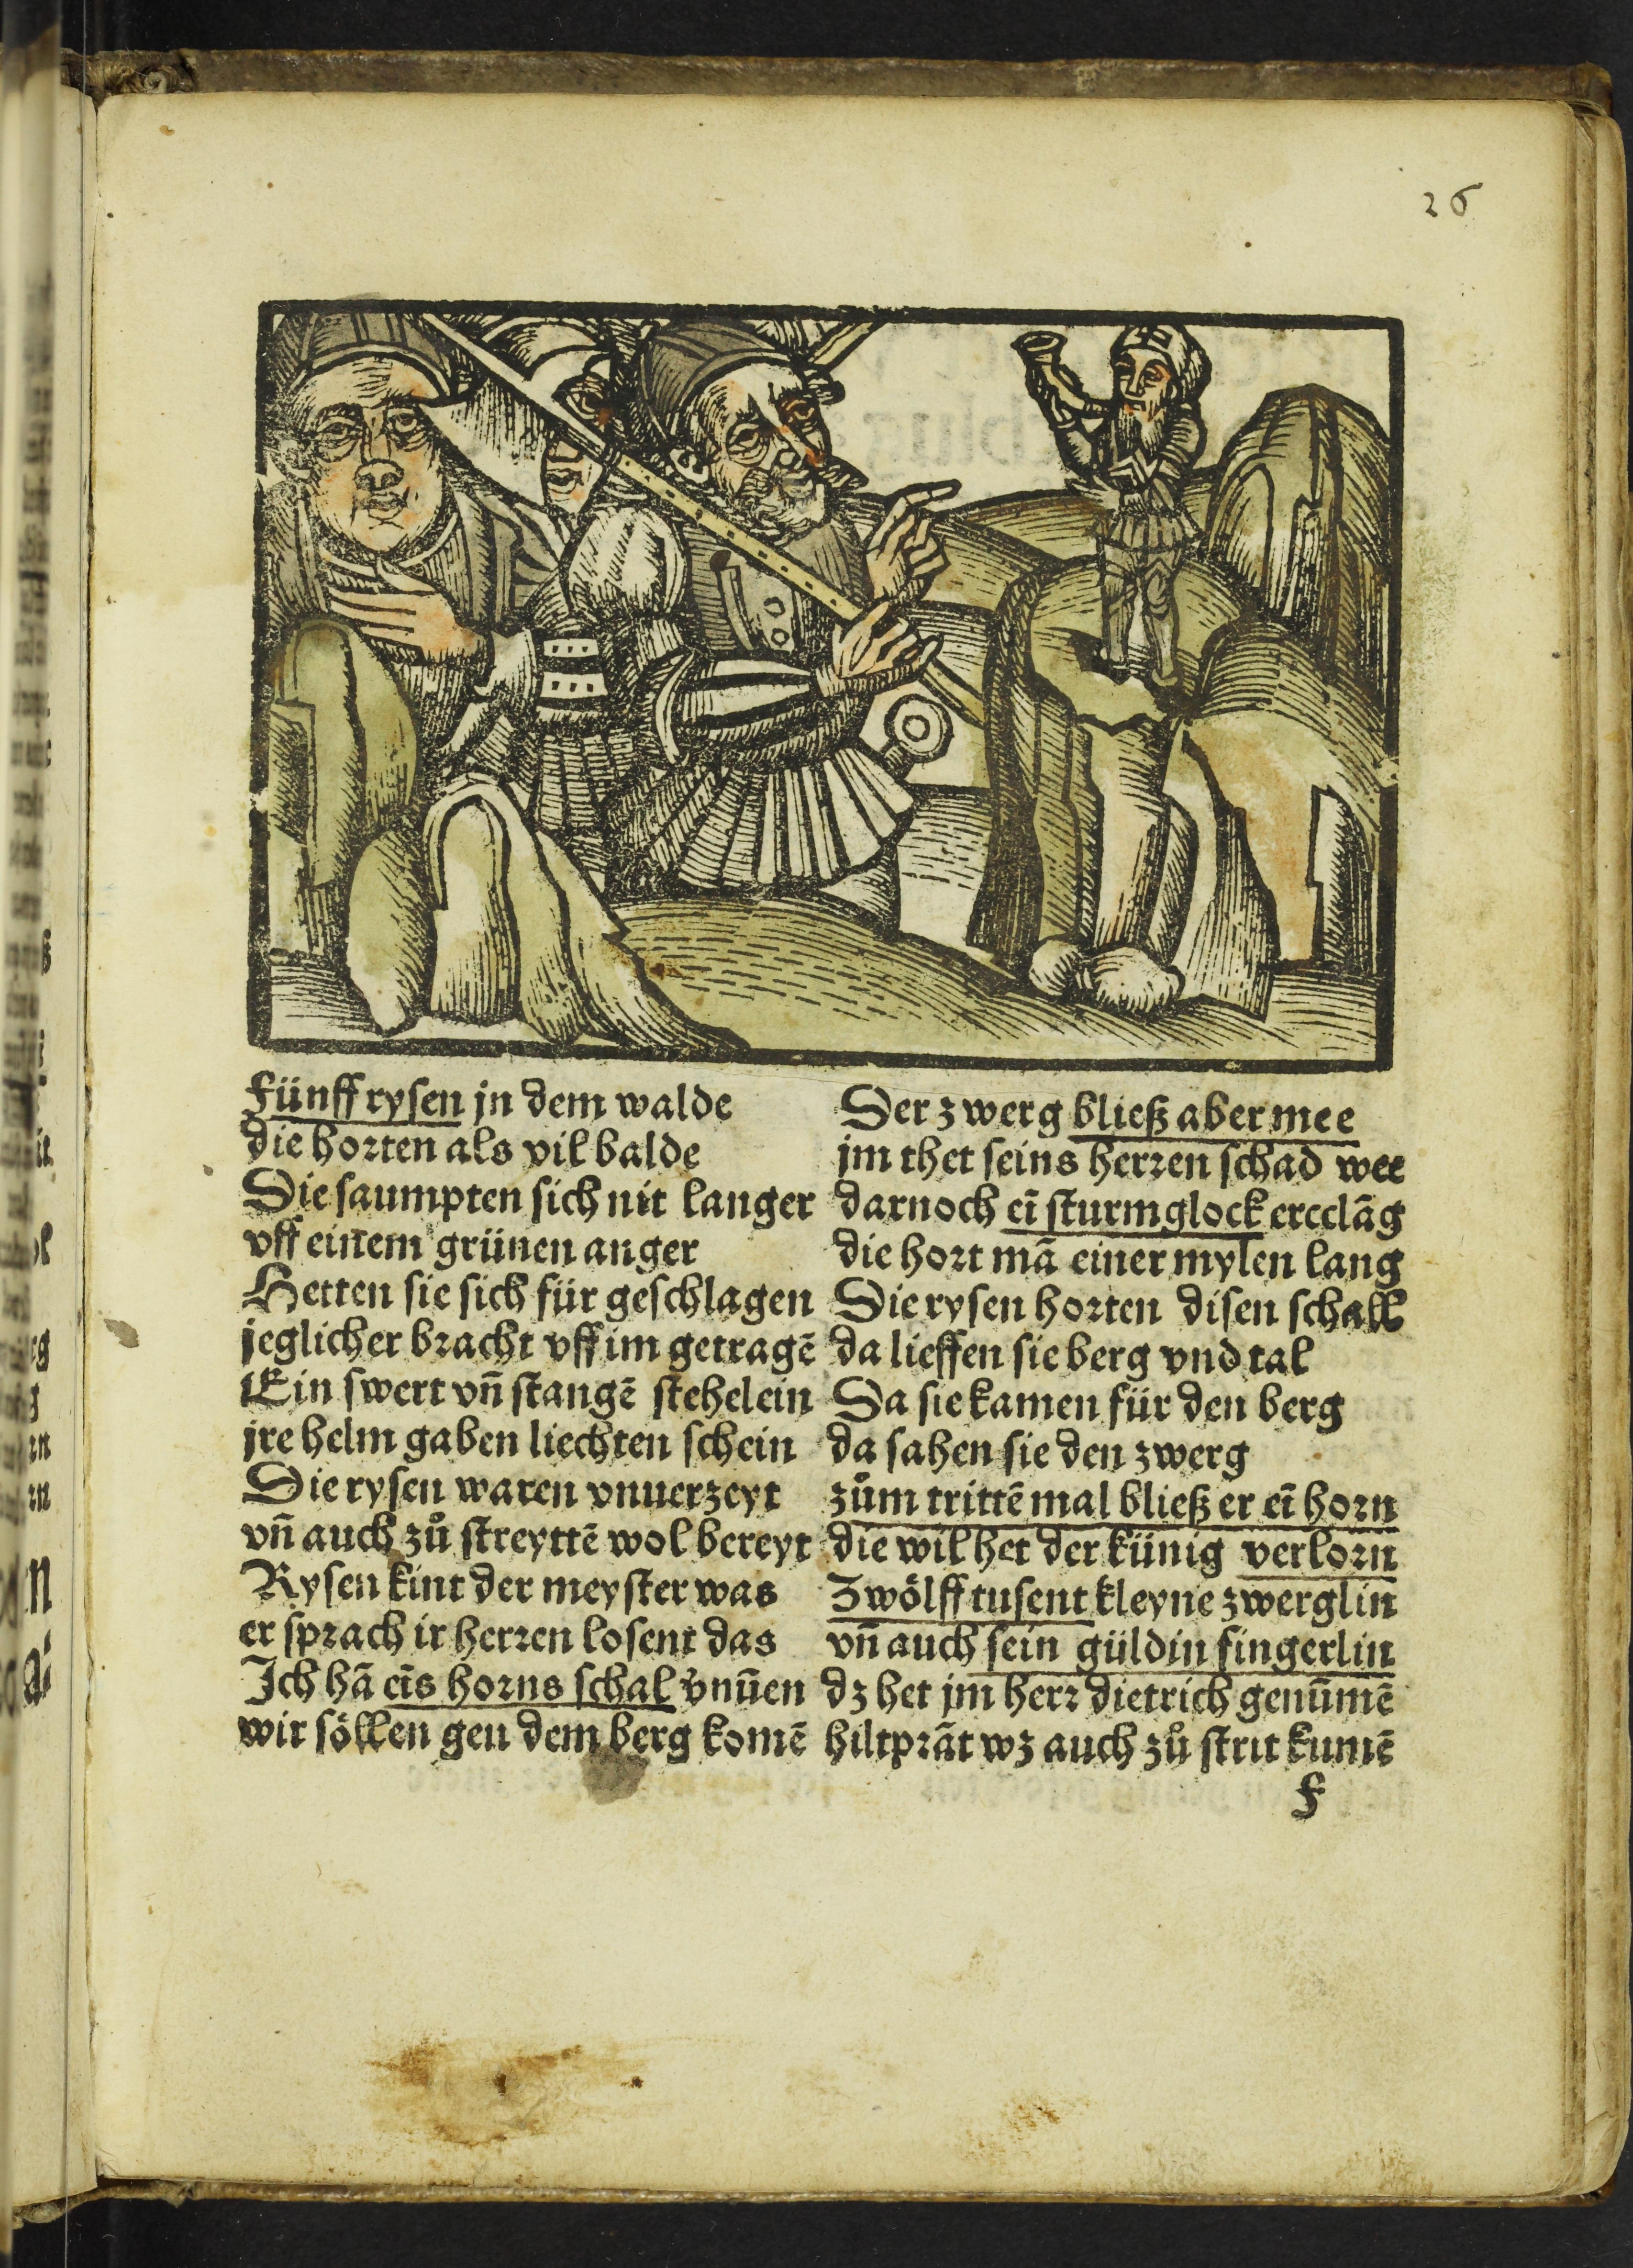 26
Fünff rysen jn dem walde
die horten als vil balde
Die saumpten sich nit langer
vff einem grünen anger
Hetten sie sich für geschlagen
jeglicher bracht vff im getragē
Ein swert vn̄ stangē stehelein
jre helm gaben liechten schein
Die rysen waren vnuerzeyt
vn̄ auch zů streyttē wol bereyt
Rysen kint der meyster was
er sprach ir herren losent das
Ich hā eīs horns schal v̓nūen
wir söllen gen dem berg komē
Der zwerg bließ aber mee
jm thet seins herren schad wee
darnoch eī sturmglock erclāg
die hort mā einer mylen lang
Die rysen horten disen schall
da lieffen sie berg vnd tal
Da sie kamen für den berg
da sahen sie den zwerg
zům trittē mal bließ er eī horn
die wil het der künig verlorn
Zwölff tusent kleyne zwerglin
vn̄ auch sein güldin fingerlin
dz het jm herr dietrich genūmē
hiltprāt wz auch zů strit kumē
f